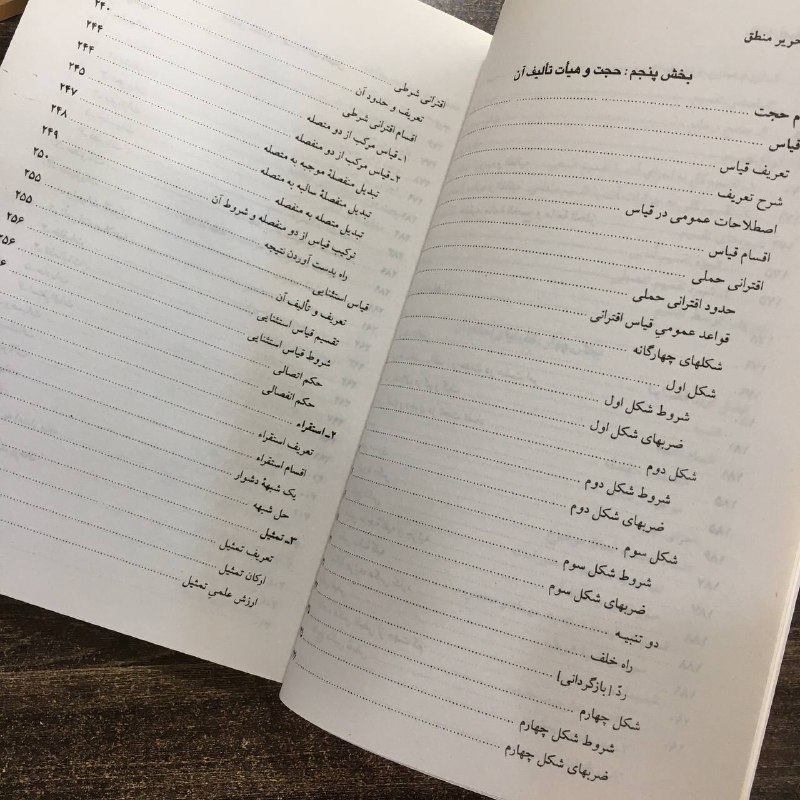 حریر منطق
بخش پنجم : حجت و هیأت تألیف آن
م حجت
قیاس
تعریف قیاس
شرح تعریف
اصطلاحات عمومی در قیاس
اقسام قیاس
اقترانی حملی
حدود اقترانی حملی
قواعد عمومی قیاس اقترانی
شکلهای چهارگانه
شکل اول
شروط شکل اول
ضربهای شکل اول
شکل دوم
شروط شکل دوم
ضربهای شکل دوم
شکل سوم
شروط شکل سوم
ضربهای شکل سوم
دو تنبیه
راه خلف
ردّ [بازگردانی]
شکل چهارم
شروط شکل چهارم
ضربهای شکل چهارم
اقترانی شرطی ۲۴۰
تعریف و حدود آن ۲۴۴
اقسام اقترانی شرطی ۲۴۴
۱ـ قیاس مرکب از دو متصله ۲۴۵
۲ـ قیاس مرکب از دو منفصله ۲۴۷
تبدیل منفصلهٔ موجبه به متصله ۲۴۸
تبدیل منفصلهٔ سالبه به متصله ۲۴۹
تبدیل متصله به منفصله ۲۵۰
ترکیب قیاس از دو منفصله و شروط آن ۲۵۵
راه بدست آوردن نتیجه ۲۵۵
قیاس استثنایی ۲۵۶
تعریف و تألیف آن ۲۵۶
تقسیم قیاس استثنایی
شروط قیاس استثنایی
حکم اتصالی
حکم انفصالی
۲ـ استقراء
تعریف استقراء
اقسام استقراء
یک شبههٔ دشوار
حل شبهه
۳ـ تمثیل
تعریف تمثیل
ارکان تمثیل
ارزش علمی تمثیل